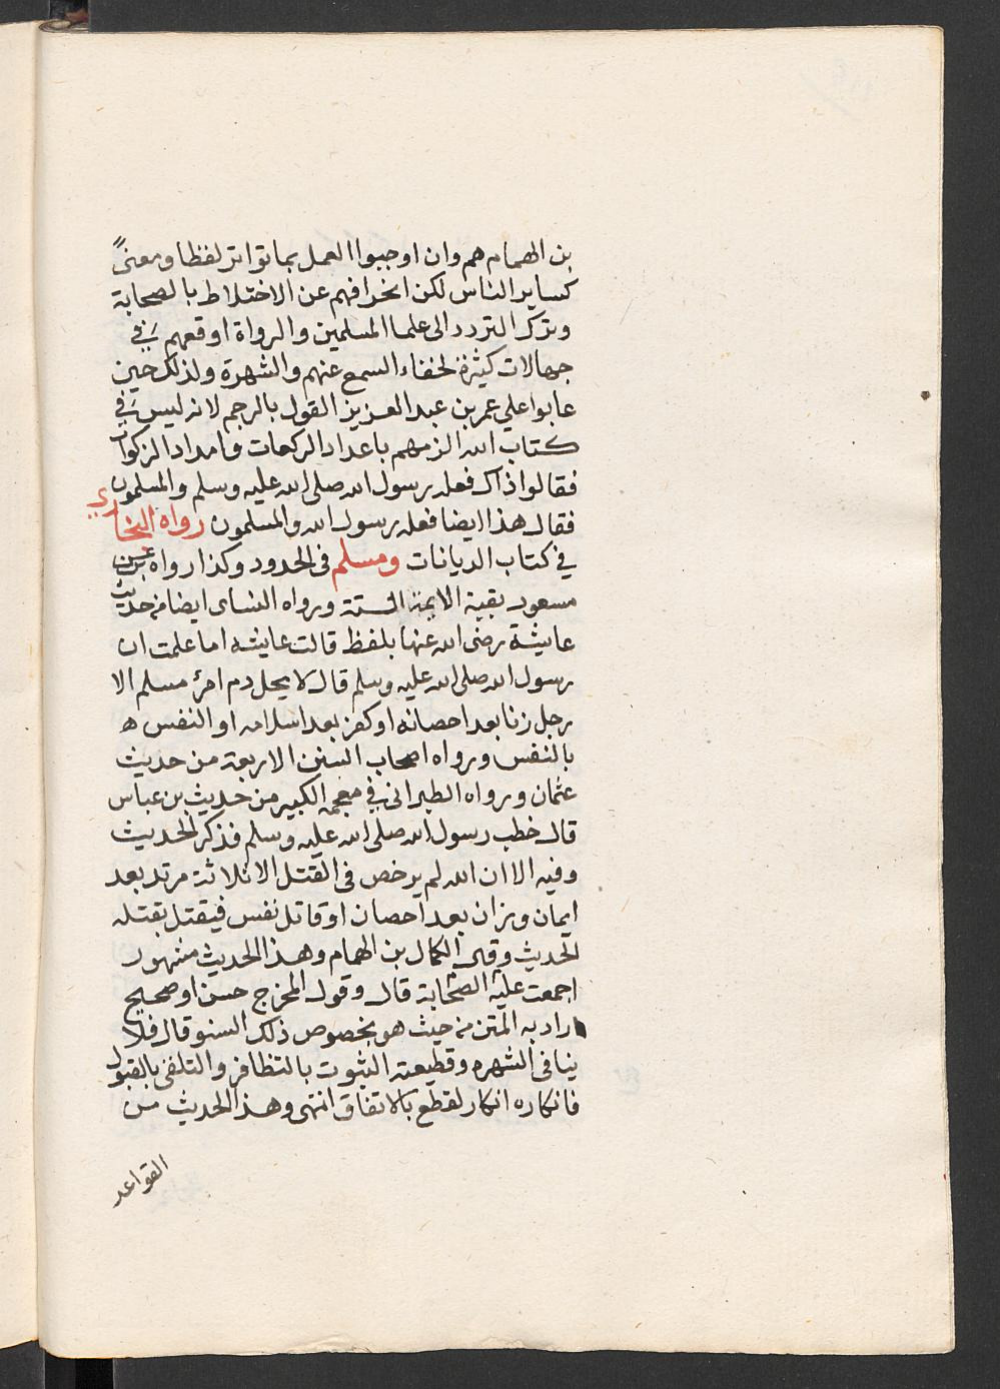 بن الهمام هم وان اوجبوا العمل بما تواتر لفظا ومعنىً
كساير الناس لكن انحرافهم عن الاختلاط بالصحابة
وترك التردد الى علما المسلمين والرواة اوقعهم في
جهالات كثيرة لخفاء السمع عنهم والشهرة ولذلك حين
عابوا علي عمر بن عبد العزيز القول بالرجم لانه ليس في
كتاب الله الزمهم باعداد الركعات ومامداد الزكوات
فقالوا ذاك فعله رسول الله صلى الله عليه وسلم والمسلمون
فقال هذا ايضا فعله رسول الله والمسلمون رواه البخاري
في كتاب الديانات ومسلم فى الحدود وكذا رواه عن بن
مسعود بقية الايمة الستة ورواه النساى ايضا من حديث
عايشة رضى الله عنها بلفظ قالت عايشه اما علمت ان
رسول الله صلى الله عليه وسلم قال لا يحل دم امرئ مسلم الا
رجل زنا بعد احصانه او كفر بعد اسلامه او النفس ه
بالنفس ورواه اصحاب السنن الاربعة من حديث
عثمان ورواه الطبرانى في معجمه الكبير من حديث بن عباس
قال خطب رسول الله صلى الله عليه وسلم فذكر الحديث
وفيه الا ان الله لم يرخص فى القتل الا ثلاثة مرتد بعد
ايمان وزان بعد احصان او قاتل نفس فيقتل بقتله
الحديث وقال الكمال بن الهمام وهذا الحديث مشهور
اجمعت عليه الصحابة قال وقول المخرج حسن او صحيح
اراد به المتن من حيث هو بخصوص ذلك السند وقال فلا
ينافى الشهره وقطيعة الثبوت بالتظافر والتلقى بالقبول
فانكاره انكار لقطع بالاتفاق انتهى وهذا الحديث من
القواعد